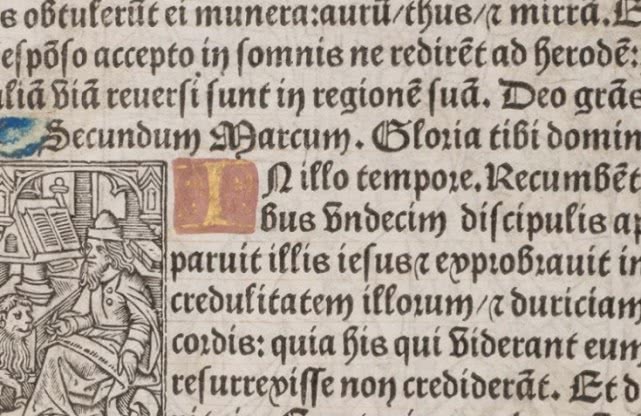 s obtulerūt ei munera: aurū/thus/⁊ mirrā. E
espōso accepto in somnis ne redirēt ad herodē:
aliā viā reuersi sunt in regionē suā. Deo grās
Secundum Marcum. Gloria tibi domin
IN illo tempore. Recumbēt
bus vndecim discipulis ap
paruit illis iesus ⁊ exprobrauit in
credulitatem illorum/⁊ duriciam
cordis: quia his qui viderant eum
resurrexisse non crediderāt. Et d